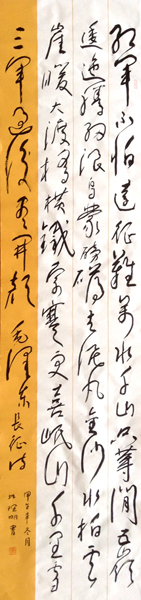 红軍不怕遠征難萬水千山只等閒五嶺
逶迤腾细浪烏蒙磅礴走泥丸金沙水拍雲
崖暖大渡橋横鐵索寒更喜岷山千里雪
三軍過後盡開顔 毛澤东長征诗
甲午年冬月
明書